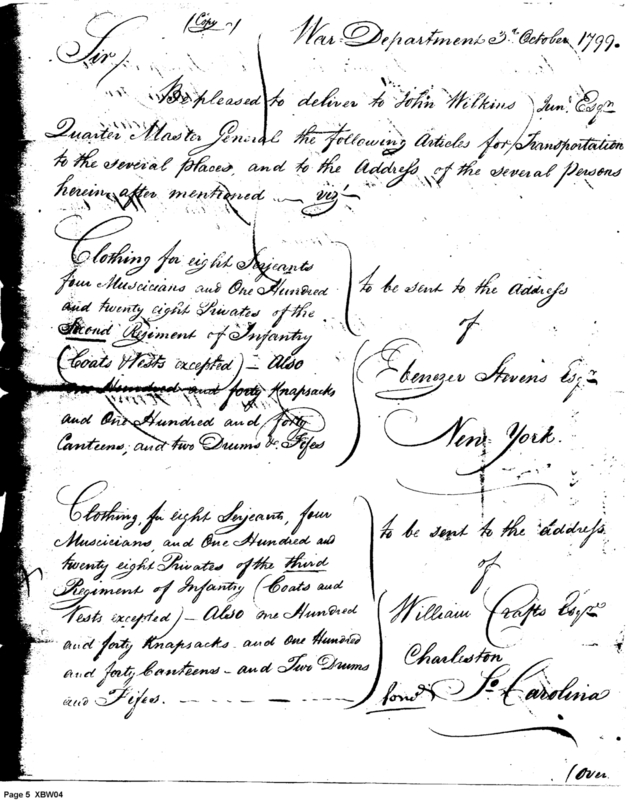 (Copy)
War-Department 3d. October 1799.
Sir,
Be pleased to deliver to John Wilkins Junr. Esqr.
Quarter Master General the following Articles for Transportation
to the several places, and to the Address of the several Persons
herein after mentioned — vizt.
Clothing for eight Serjeants
four Muscicians and One Hundred
and twenty eight Privates of the
Second Regiment of Infantry
(Coats & Vests excepted) — Also
One Hundred and forty Knapsacks
and One Hundred and forty
Canteens, and two Drums & Fifes
to be sent to the address
of
Ebenezer Stevens Esqr.
New York.
Clothing, for eight Serjeants, four
Muscicians, and One Hundred and
twenty eight Privates of the third
Regiment of Infantry (Coats and
Vests excepted) — Also one Hundred
and forty Knapsacks and One Hundred
and forty Canteens — and Two Drums
and Fifes.
to be sent to the address
of
William Crafts Esqr.
Charleston
So. Carolina
(Over
Page 5 XBW04